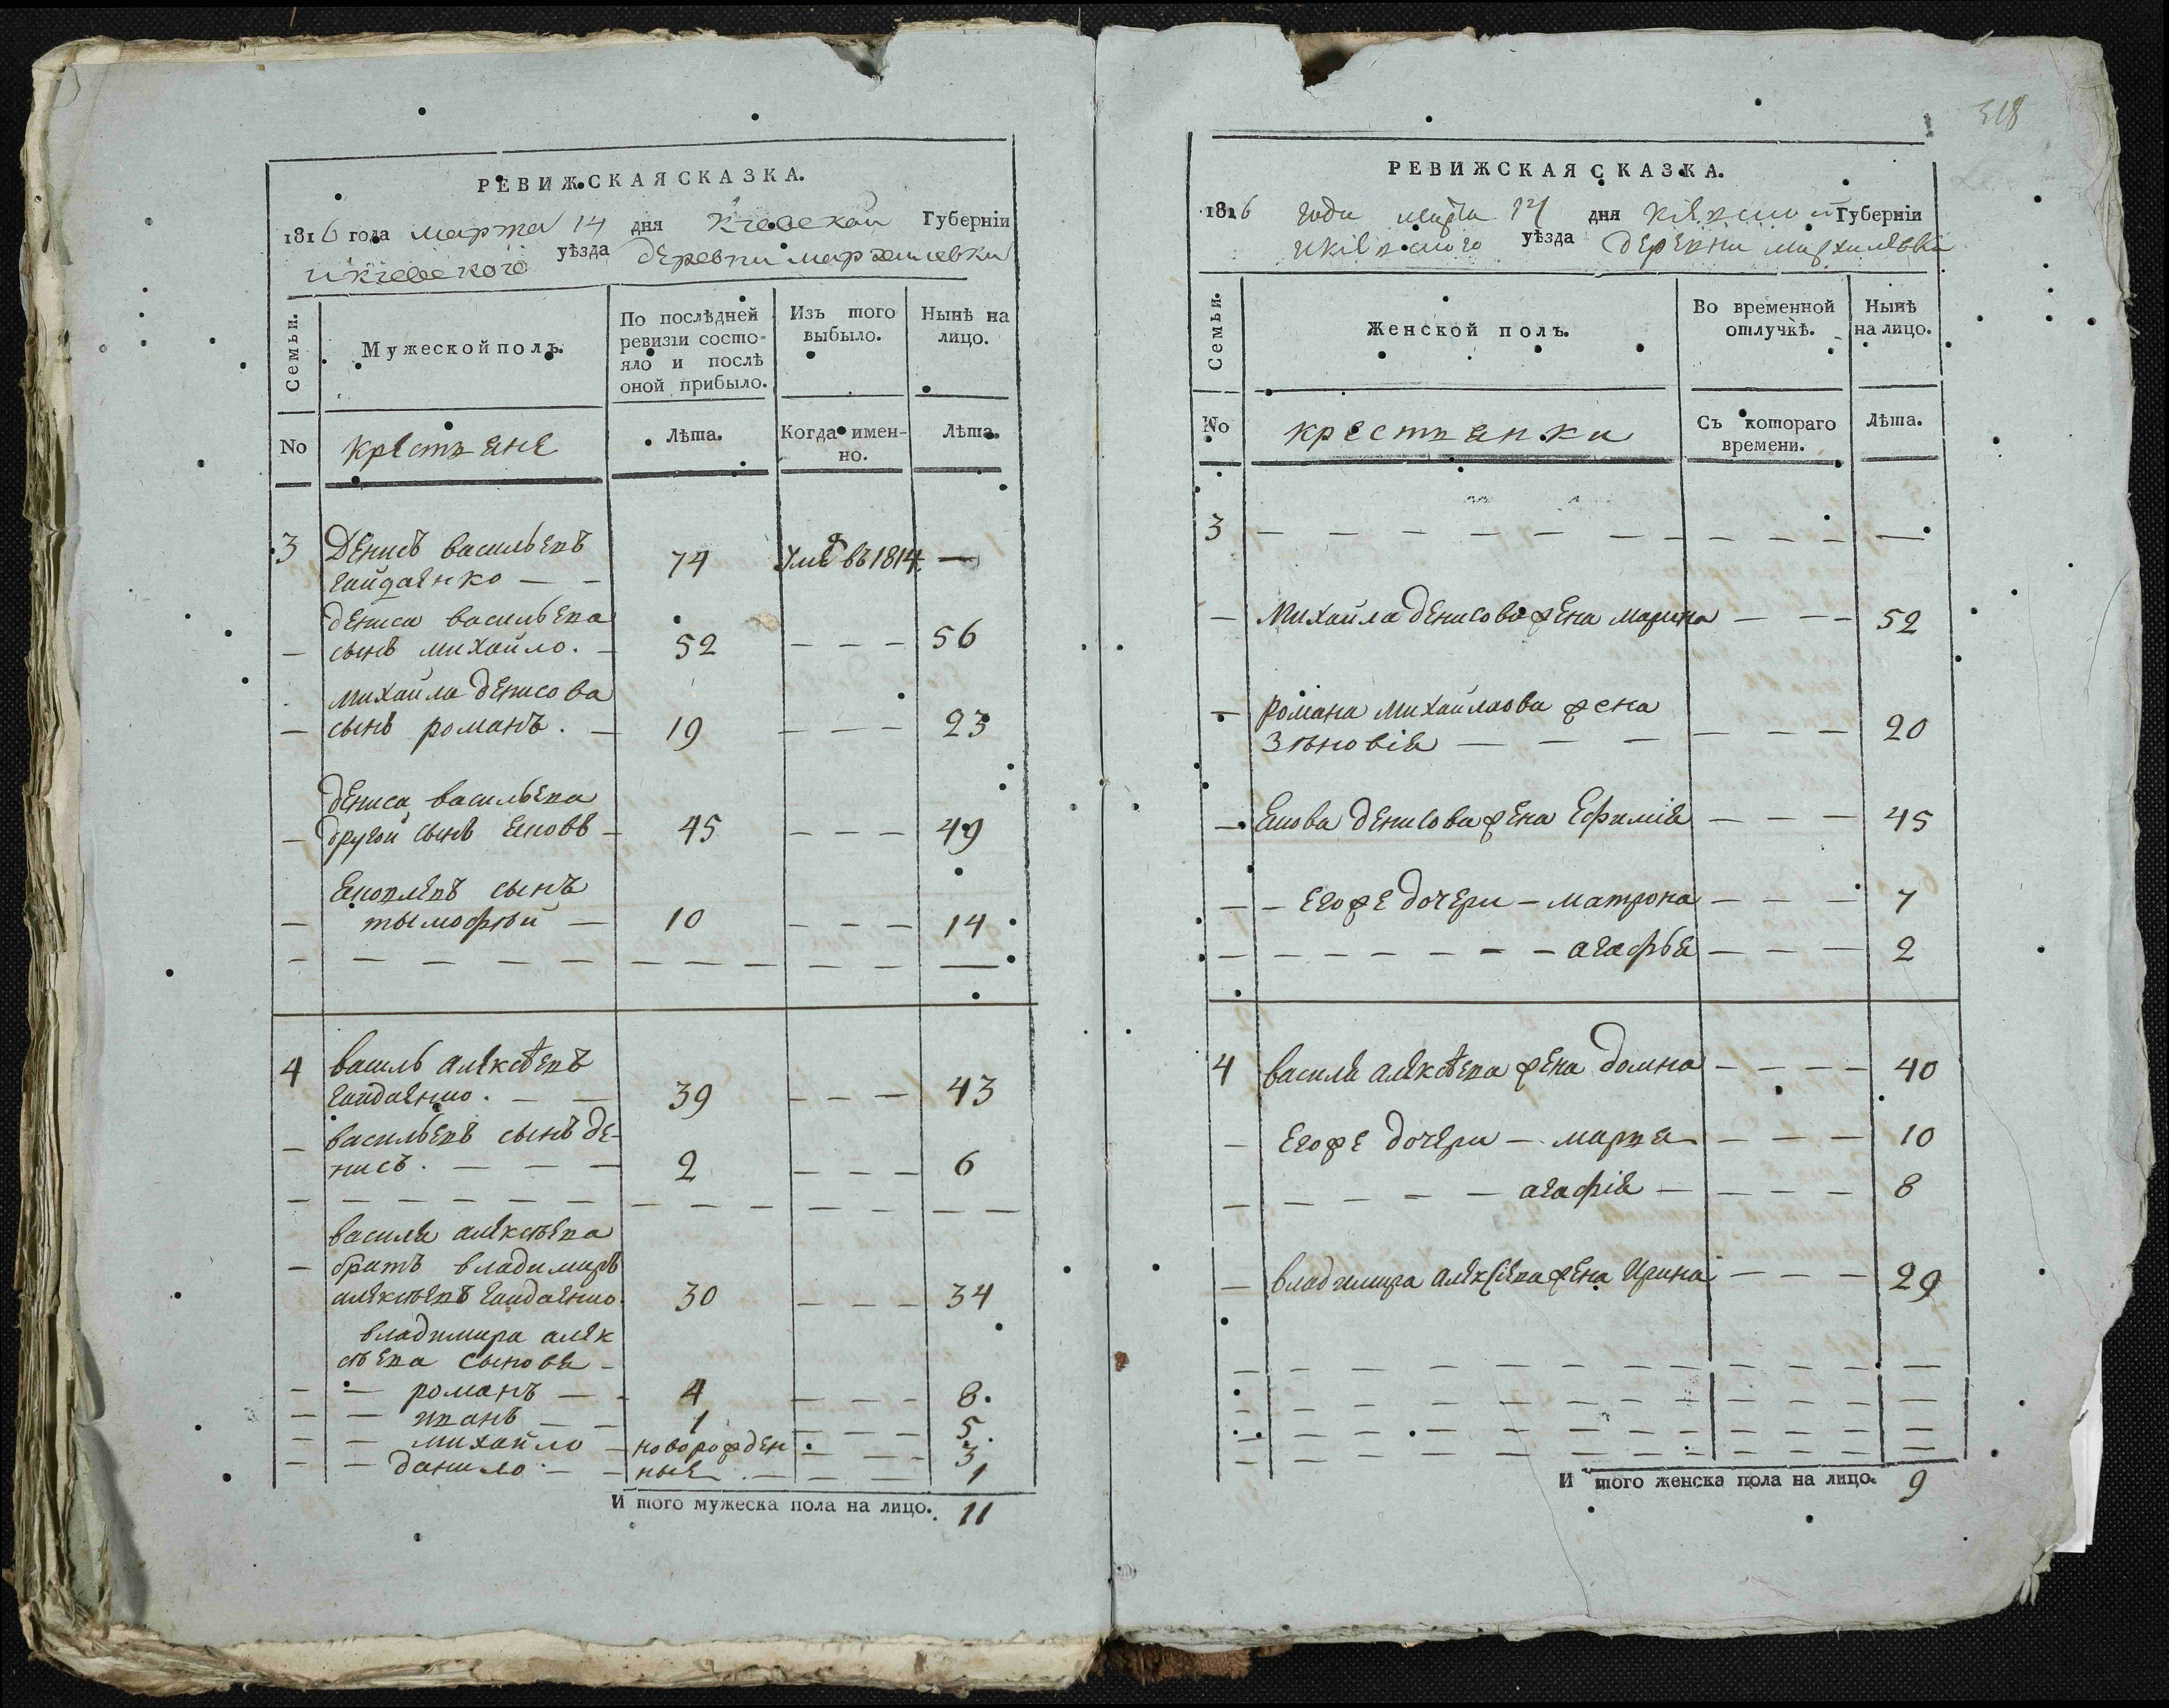 РЕВИЖСКАЯ СКАЗКА.
1816 года марта 14 дня Киевской Губерніи
и Киевского уѣзда деревни Мархалевки
Семьи.
Мужеской полъ.
По послѣдней ревизіи состояло и послѣ оной прибыло.
Изъ того выбыло.
Нынѣ на лицо.
No
крестьяне
Лѣта.
Когда имен-
но.
Лѣта.
3 Денисъ васильевъ
гайдаенко — — 74 Умѣ въ 1814. —
дениса васильева
— сынъ михайло. — 52 — — — 56
михайла денисова
— сынъ романъ. — 19 — — — 23
дениса васильева
— другой сынъ Яковъ — 45 — — — 49
Яковлевъ сынъ
— тымофѣй — 10 — — — 14
4 василь алексѣевъ
гайдаенко. — — 39 — — — 43
— васильевъ сынъ де-
нисъ. — — — 2 — — — 6
василя алексѣева
— братъ владимиръ
алексѣевъ гайдаенко. 30 — — — 34
владимира алек
сѣева сыновя —
— — романъ — — 4 — — — 8.
— — иванъ — — 1 — — — 5.
— — михайло — новорожден — — — 3
— — данило — — ные — — — 1
И того мужеска пола на лицо. 11
318
РЕВИЖСКАЯ СКАЗКА.
1816 года марта 14 дня Кіевской Губерніи
и Кіевского уѣзда деревни мархалевки
Семьи.
Женской полъ.
Во временной отлучкѣ.
Нынѣ на лицо.
No
крестьянки
Съ котораго времени.
Лѣта.
3 — — — — — — — — — — — —
— михайла денисова жена марина — — — 52
— романа михайлова жена
Зѣновія — — — — — — 20
— Якова денисова жена Ефимія — — — 45
— — Егоже дочери — матрона — — — 7
— — — — — — — — агафья — — — 2
4 василя алексѣева жена домна — — — — 40
— Егоже дочери — марья — — — — 10
— — — — — — агафія — — — — — 8
— владимира алексѣева жена Ирина — — — 29
И того женска пола на лицо. 9